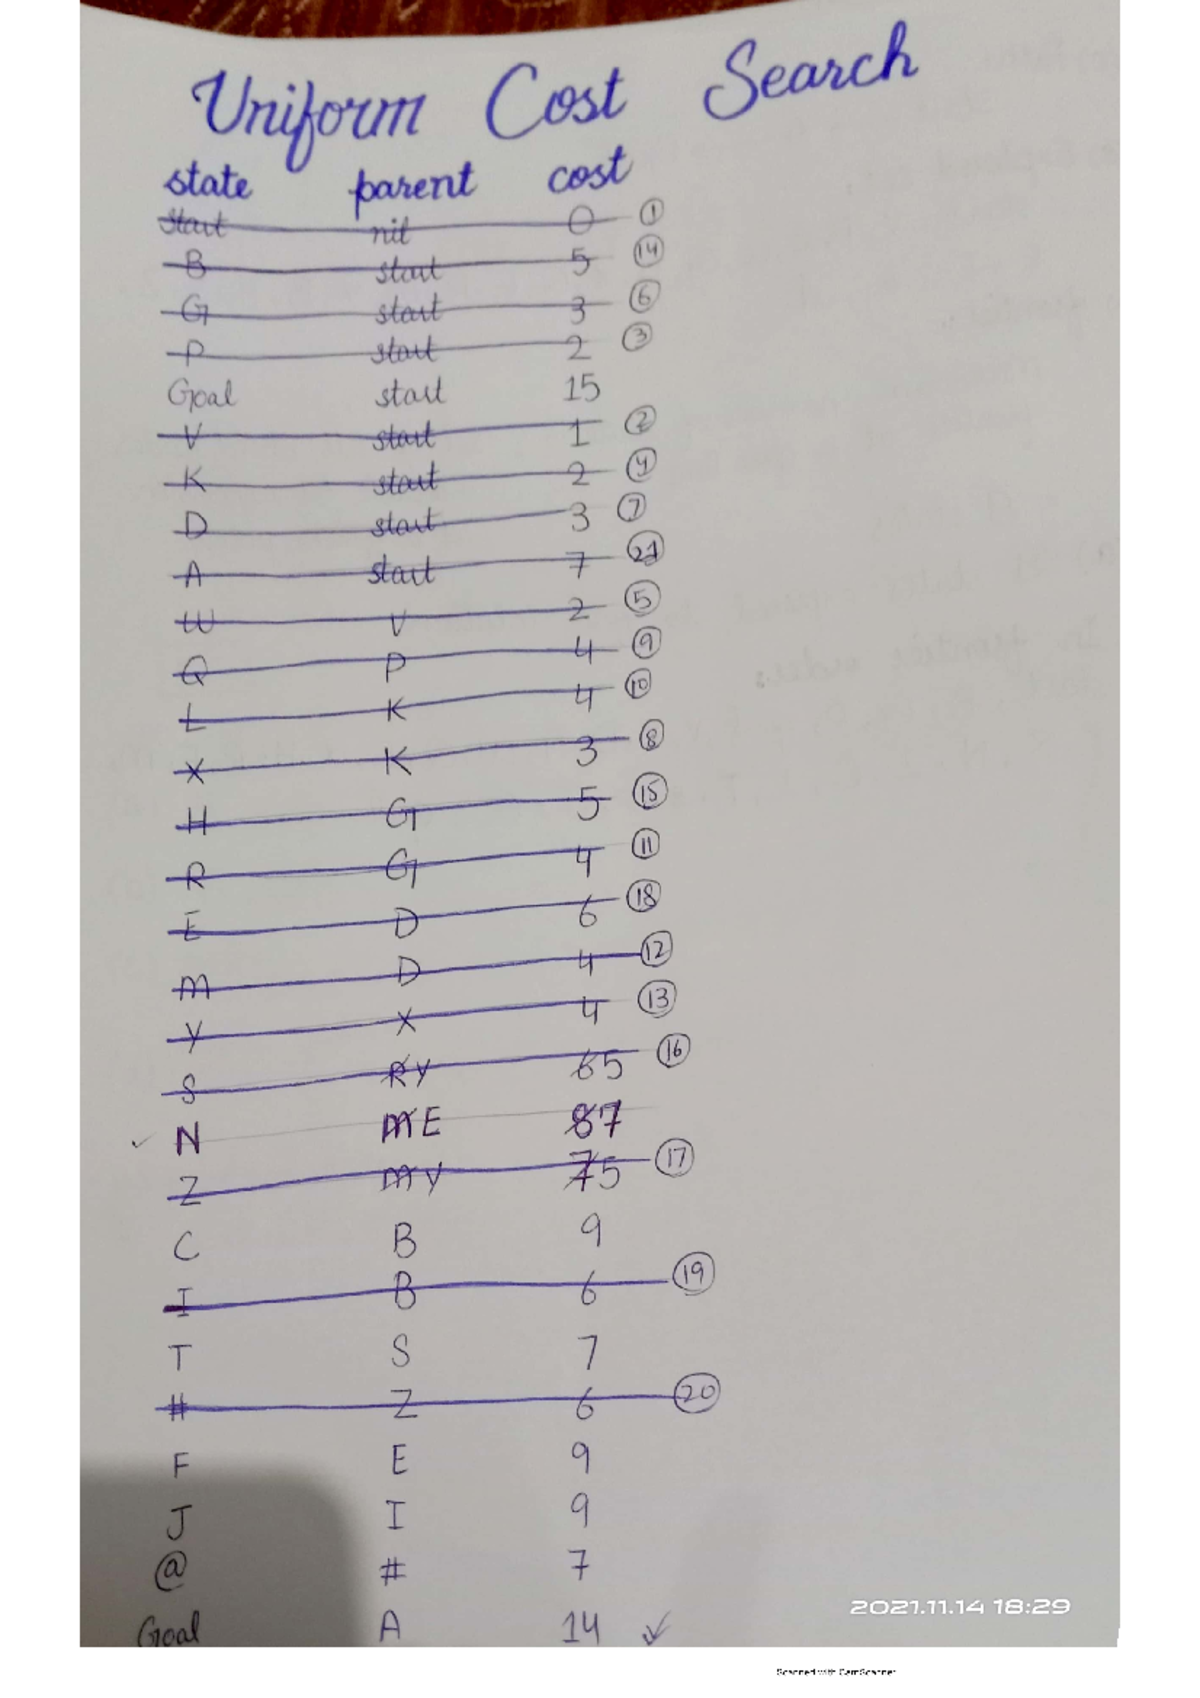 Uniform Cost Search
state parent cost
Start nil 0 1
B start 5 14
G start 3 6
P start 2 3
Goal start 15
V start 1 2
K start 2 4
D start 3 7
A start 7 21
W V 2 5
Q P 4 9
L K 4 10
X K 3 8
H G 5 15
R G 4 11
E D 6 18
M D 4 12
Y X 4 13
S R Y 6 5 16
N M E 8 7
Z M Y 7 5 17
C B 9
I B 6 19
T S 7
# Z 6 20
F E 9
J I 9
@ # 7
Goal A 14
2021.11.14 18:29
Scanned with CamScanner